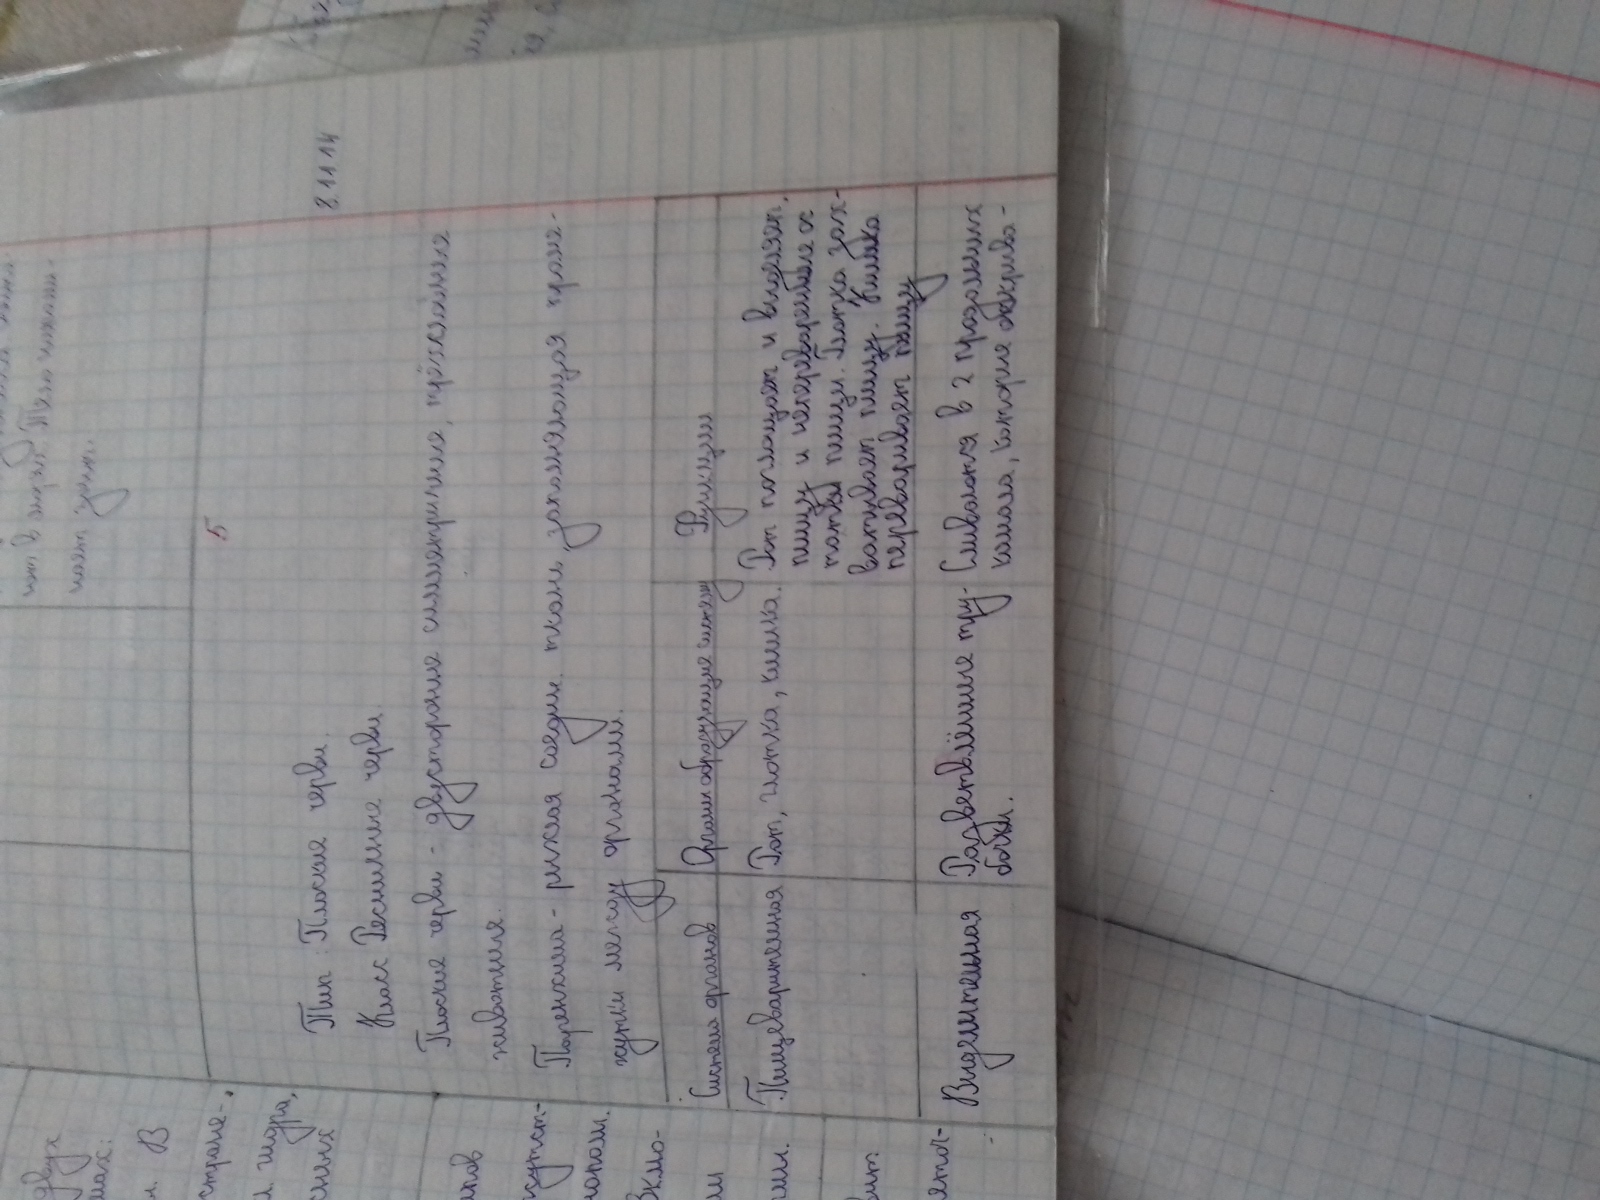 8.11.14
5
Тип: Плоские черви.
Класс Ресничные черви
Плоские черви - двусторонне симметричные, трёхслойные
животные.
Паренхима - рыхлая соедин. ткань, заполняющая проме-
жутки между органами.
Система органов Органы образующие систему Функции
Пищеварительная Рот, глотка, кишка. Рот поглощает и
пищу и непереваренные ос
татки пищи. Глотка зах-
ватывает пищу. Кишка
переваривает пищу
Выделительная Разветвлённые тру-
бочки.
Сливаются в 2 продольных
канала, которые открыва-
двух
В
гидра,